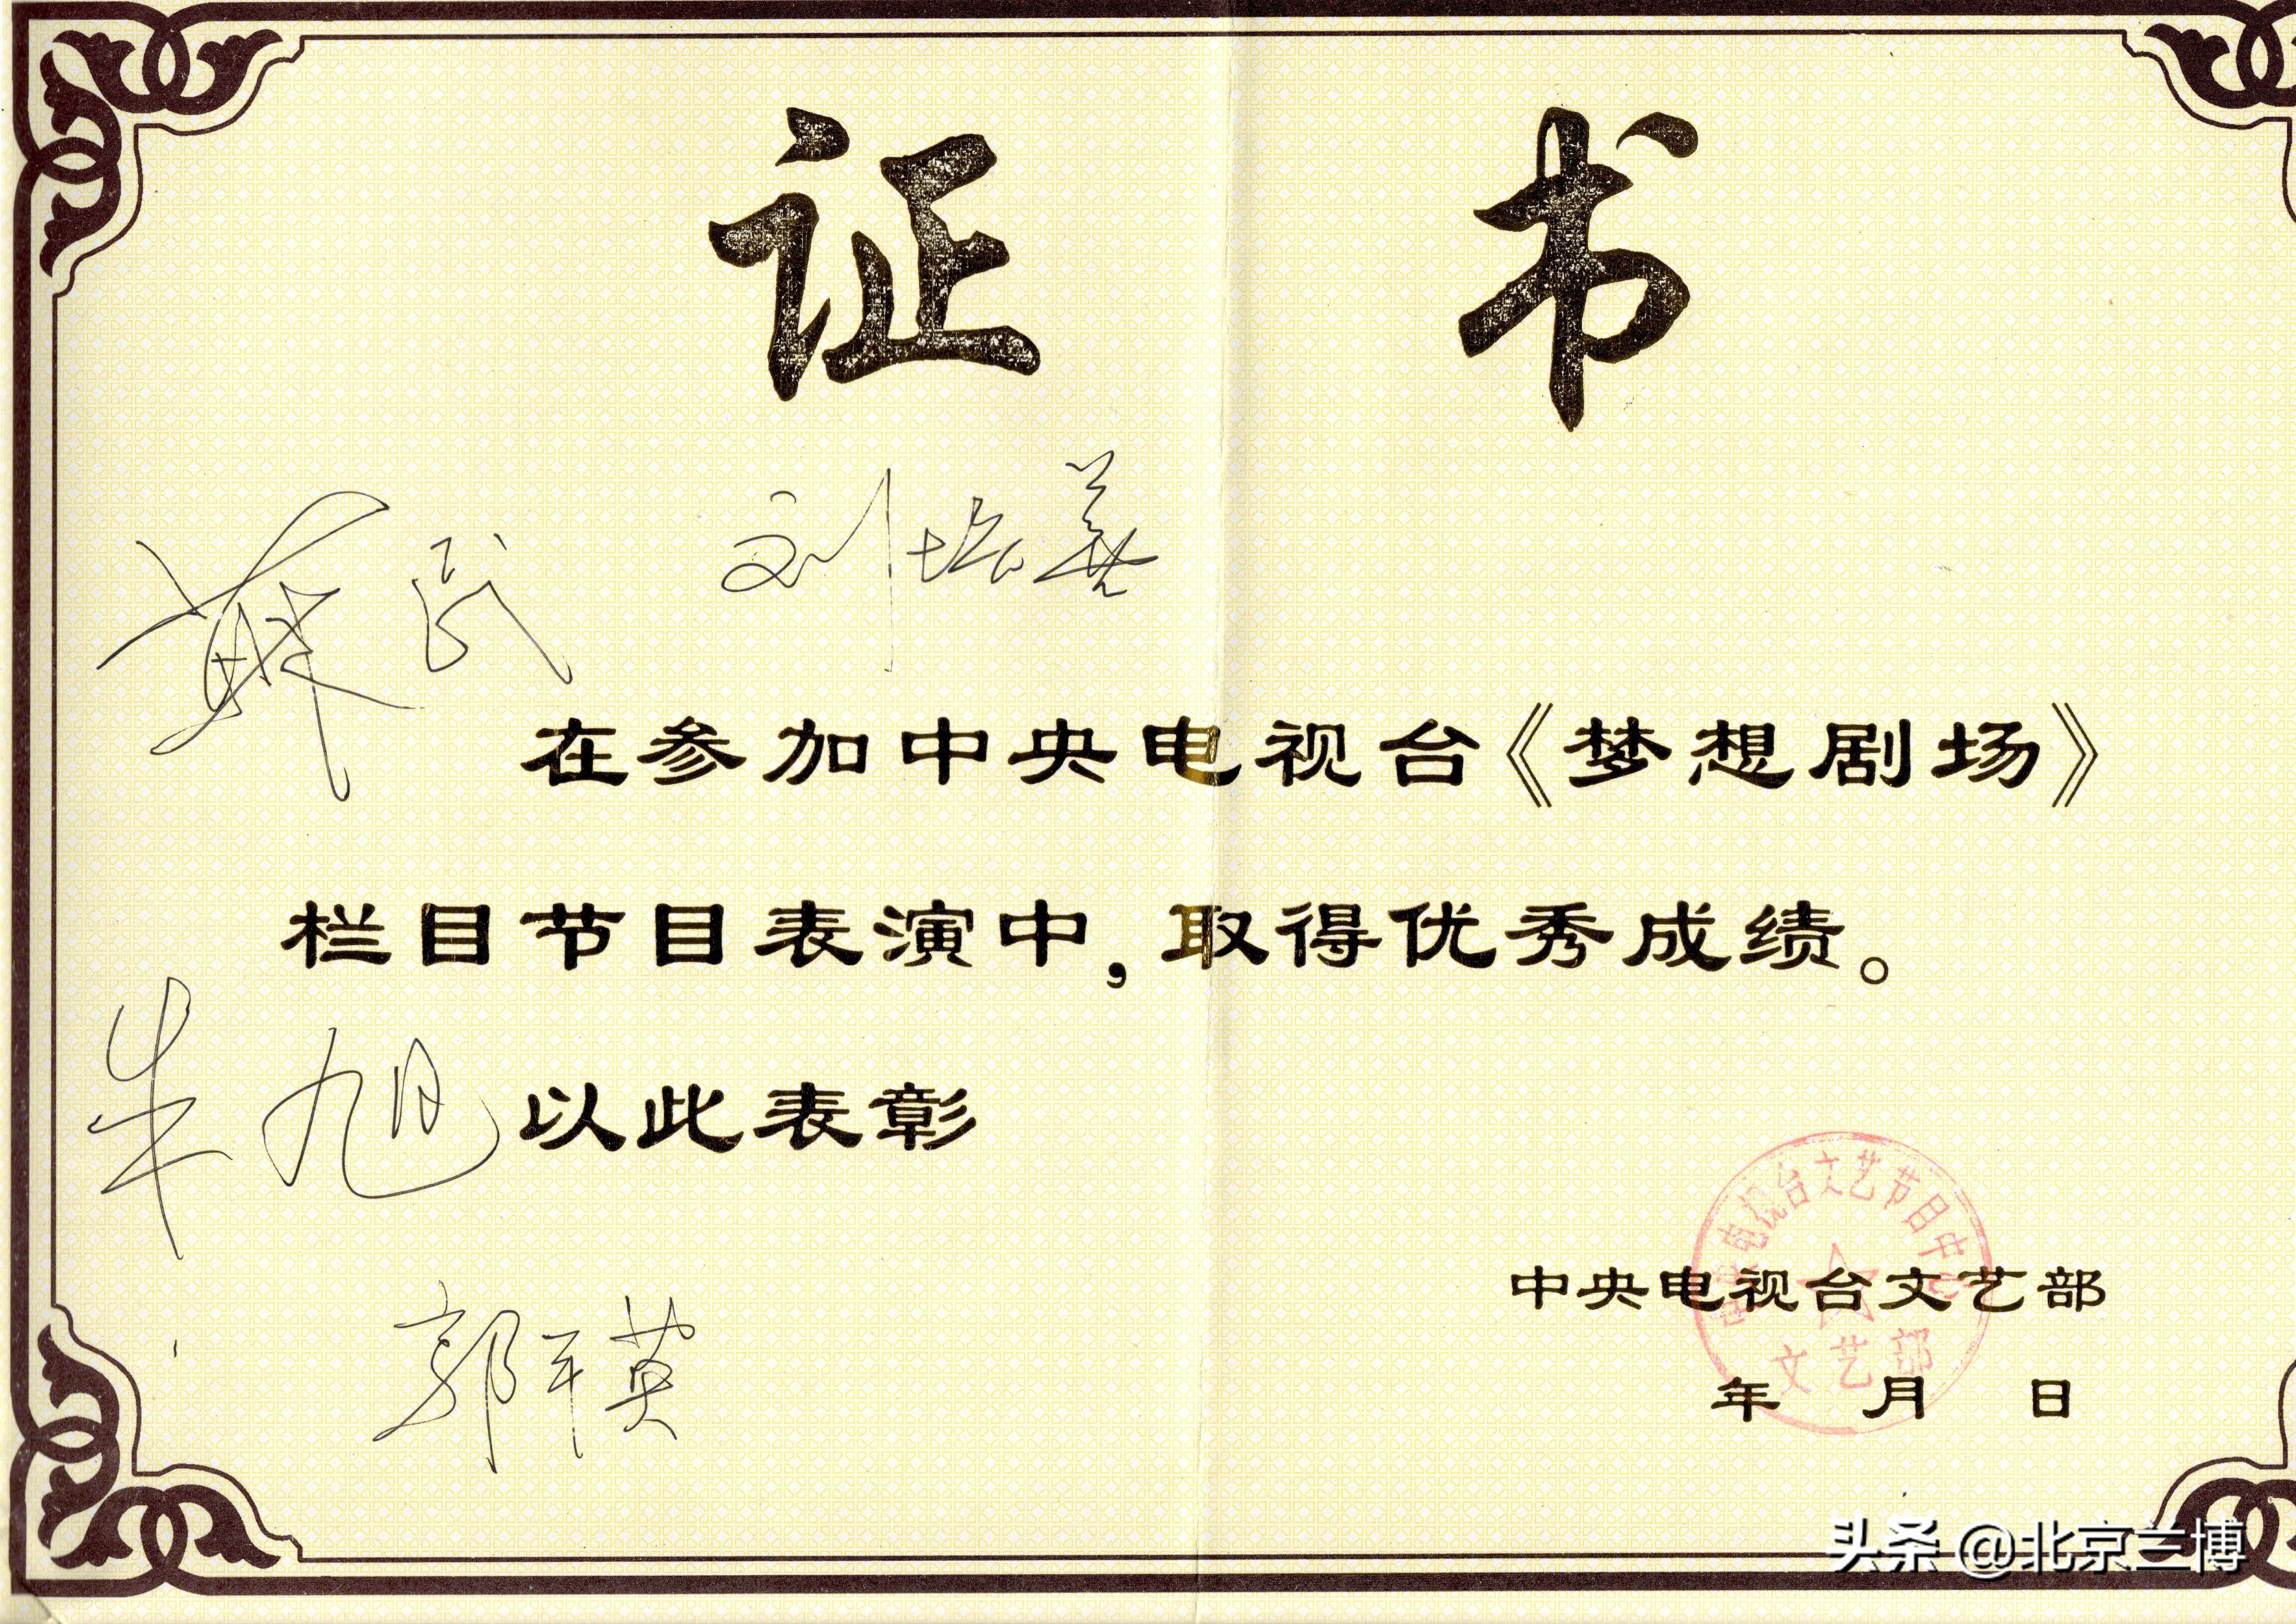 证书
蘇民
刘
在参加中央电视台《梦想剧场》
栏目节目表演中,取得优秀成绩。
朱旭
以此表彰
中央电视台文艺节目中心
文艺部
中央电视台文艺部
年 月 日
郭平英
头条 @北京兰博